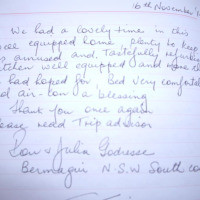 16th November
We had a lovely time in this
well equipped home plenty to keep
us amused and. Tastefully
kitchen well equipped and more
had hoped for Bed very comfortable
and air-con a blessing
Thank you once again
Please read Trip advisor
Julia
Bermagui N.S.W South